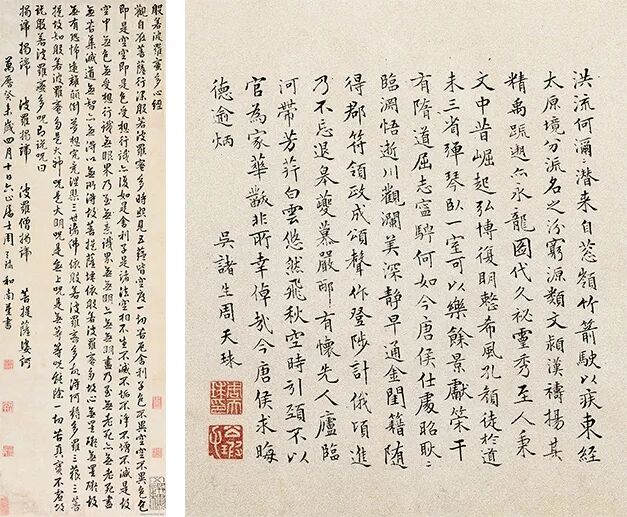 般若波羅蜜多心經
觀自在菩薩行深般若波羅蜜多時照見五蘊皆空度一切苦厄舍利子色不異空空不異色色
即是空空即是色受想行識亦復如是舍利子是諸法空相不生不滅不垢不淨不增不減是故
空中無色無受想行識無眼界乃至無意識界無無明亦無無明盡乃至無老死亦無老死盡
無苦集滅道無智亦無得以無所得故菩提薩埵依般若波羅蜜多故心無罣礙無罣礙故
無有恐怖遠離顛倒夢想究竟涅槃三世諸佛依般若波羅蜜多故得阿耨多羅三藐三菩
提故知般若波羅蜜多是大神咒是大明咒是無上咒是無等等咒能除一切苦真實不虛故
說般若波羅蜜多咒即說咒曰
揭諦揭諦 波羅揭諦 波羅僧揭諦 菩提薩婆訶
萬曆癸未歲四月十日六止居士周天球和南謹書
洪流何瀰潛來自蔥嶺竹箭駛以疾東經
太原境分流名之汾窮源類文潁漢禱揚其
精禹跡永龍圖代久祕靈秀至人秉
文中昔崛起弘博復明整希風孔顏徒於道
未三省彈琴臥一室可以樂餘景獻策干
有隋道屈志寧騁何如今唐侯仕處昭耿
臨淵悟逝川觀瀾美深靜早通金閨籍隨
得郡符領政成頌聲作登陟計俄頃進
乃不忘退皋夔慕嚴邴有懷先人廬臨
河帶芳荇白雲悠然飛秋空時引頸不以
官為家華敝非所幸倬哉今唐侯求晦
德逾炳
吳諸生周天球